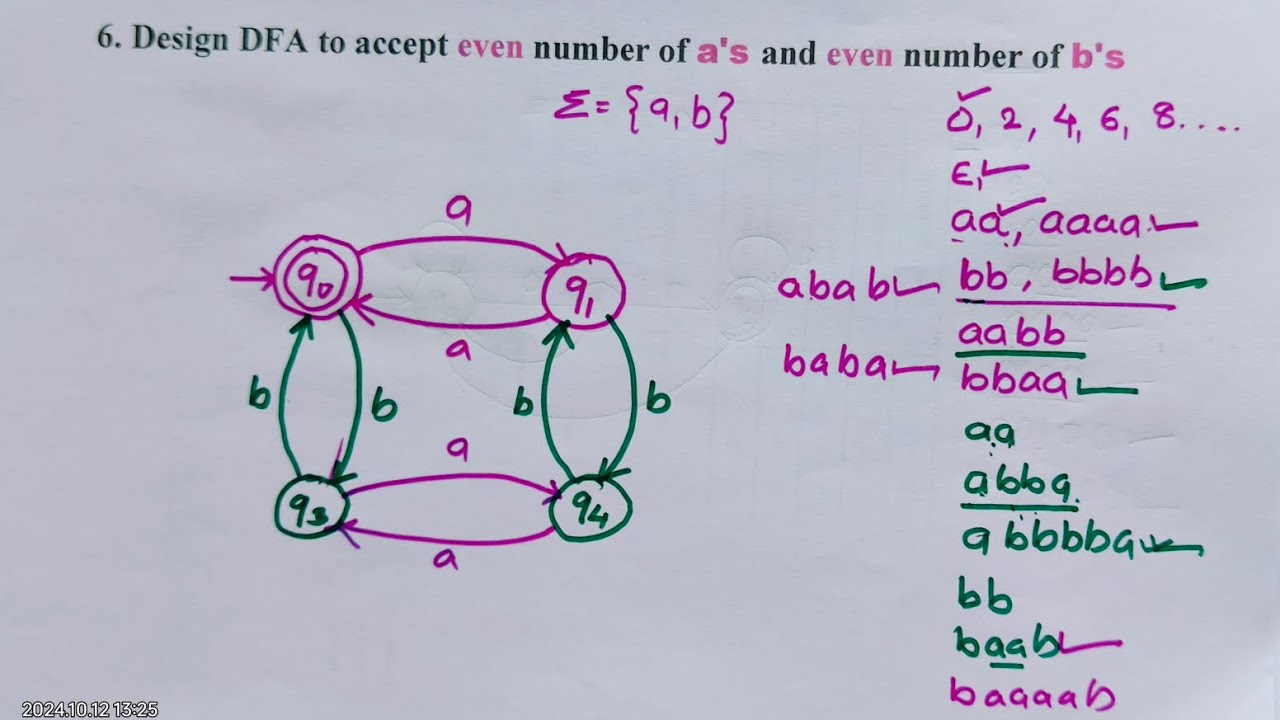 6. Design DFA to accept even number of a's and even number of b's
Σ = {a, b}
0, 2, 4, 6, 8....
ε,
aa, aaaa
bb, bbbb
ababb
aabb
baba
bbaa
aa
abba
abbbba
bb
baab
baaaab
a
q0
q1
a
b
b
b
b
a
q3
q4
a
2024.10.12 13:25